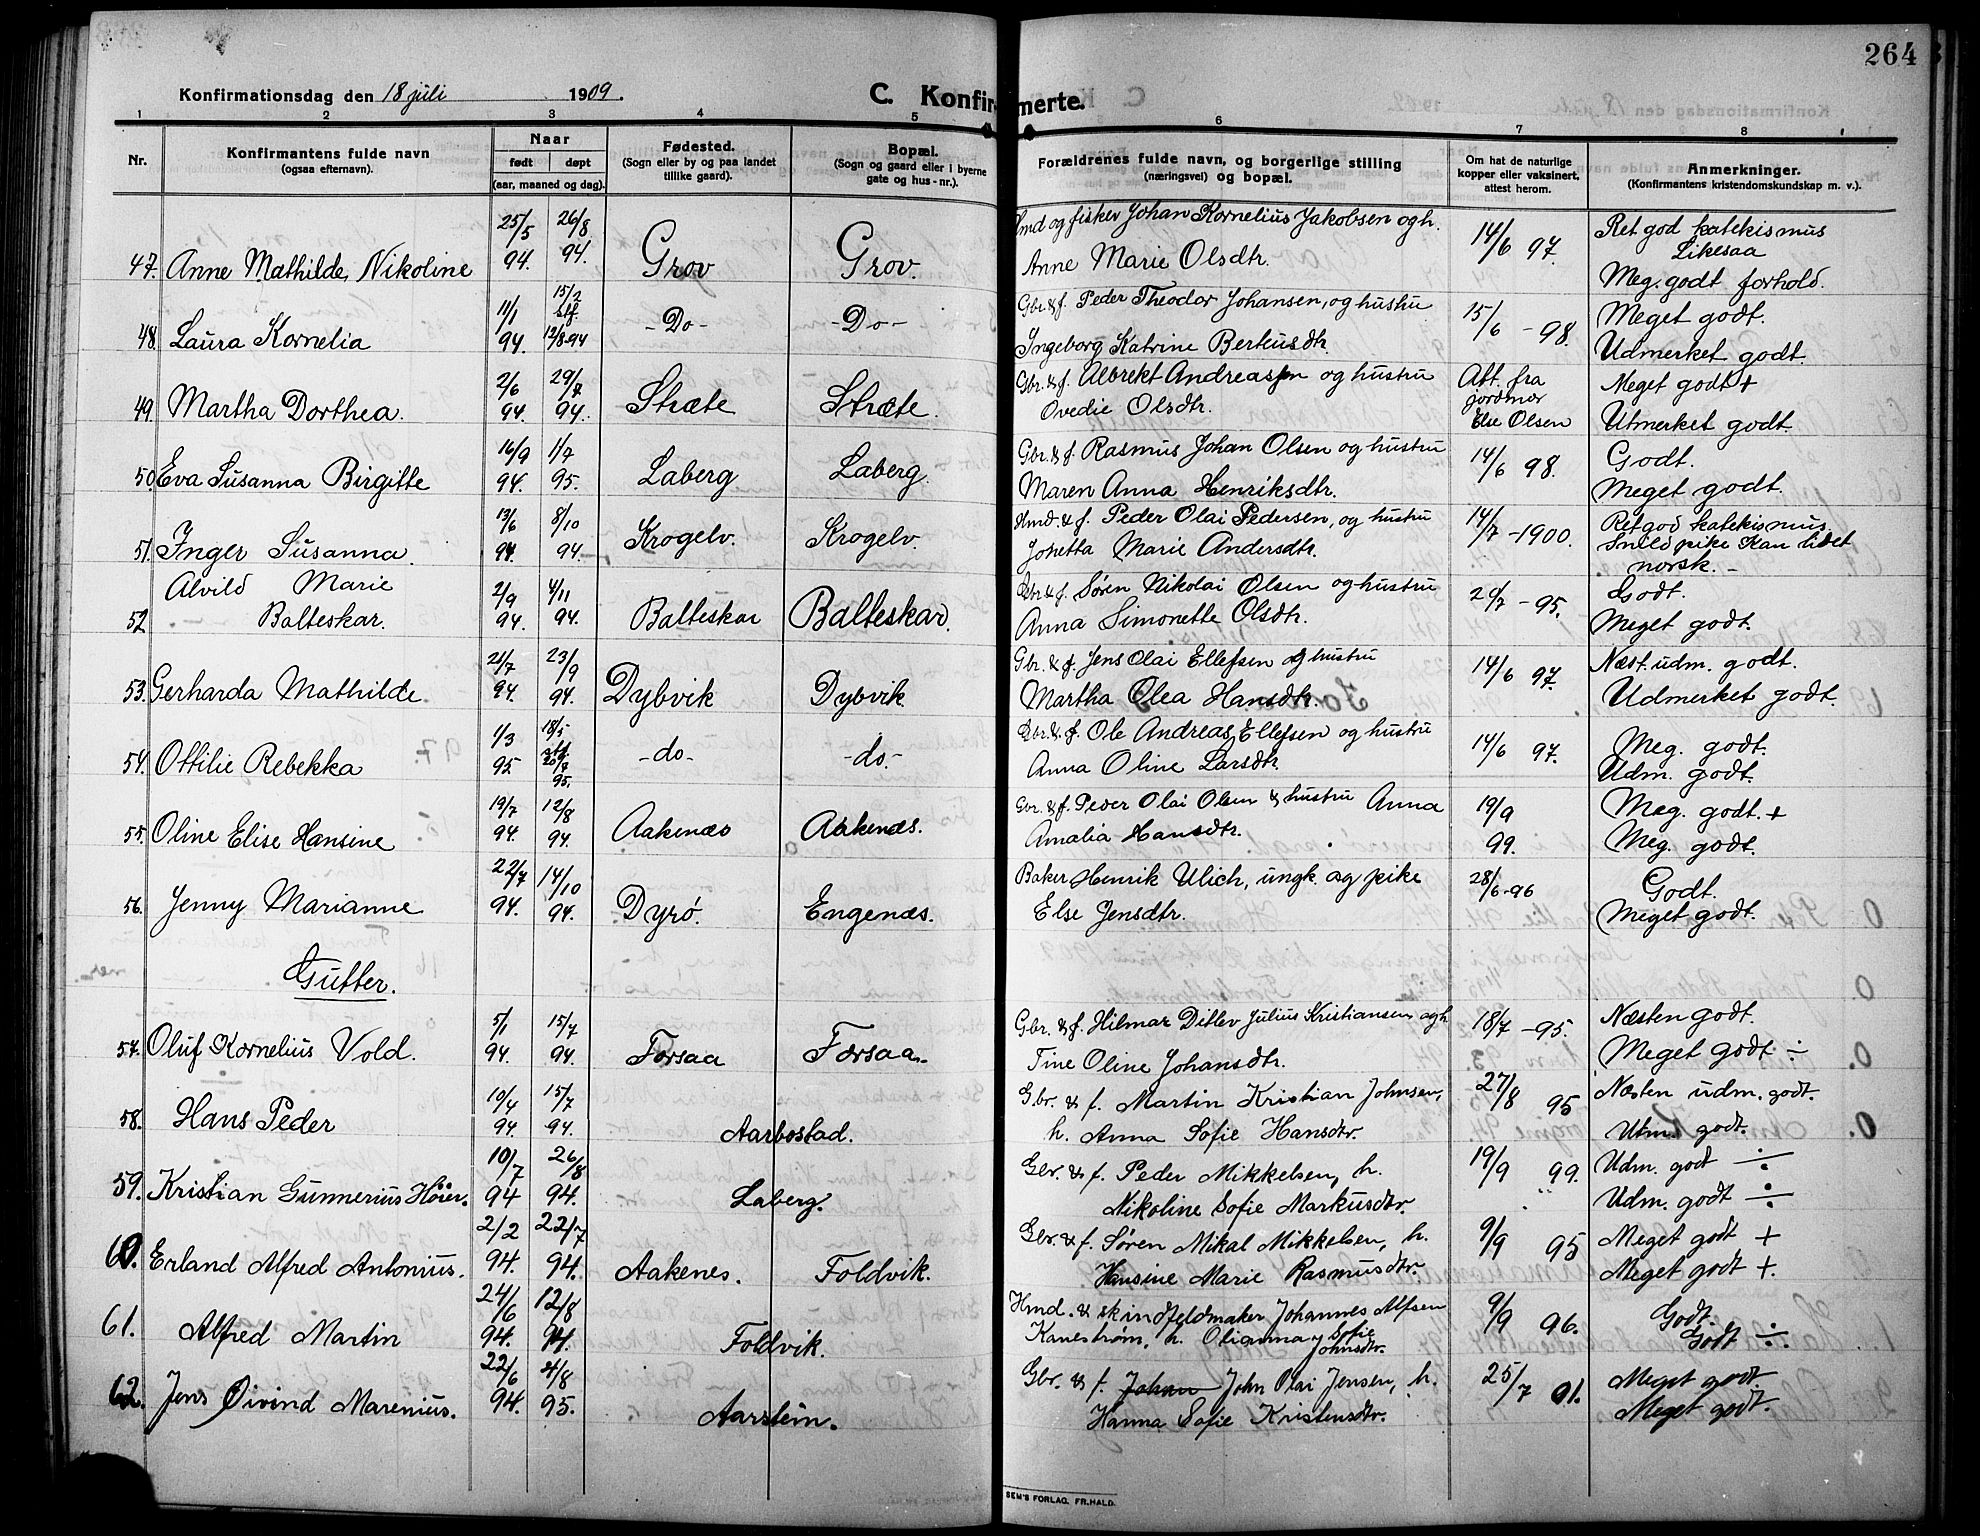 264
Konfirmationsdag den 18 juli 1909.
C. Konfirmerte.
1 2 3 4 5 6 7 8
Nr.
Konfirmantens fulde navn
(ogsaa efternavn).
Naar
født døpt
(aar, maaned og dag).
Fødested.
(Sogn eller by og paa landet
tillike gaard).
Bopæl.
(Sogn og gaard eller i byerne
gate og hus-nr.).
Forældrenes fulde navn, og borgerlige stilling
(næringsvei) og bopæl.
Om hat de naturlige
kopper eller vaksinert,
attest herom.
Anmerkninger.
(Konfirmantens kristendomskundskap m. v.).
25/5 26/8 Hmd og fisker Johan Kornelius Jakobsen og h. 14/6 97. Ret god katekismus
Likesaa
47. Anne Mathilde Nikoline 94. 94. Grov Grov. Anne Marie Olsdtr. Meg. godt forhold.
11/1 15/2 stf. Gbr. & f. Peder Theodor Johansen, og hustru 15/6 - 98. Meget godt.
48. Laura Kornelia 94. 12/8-94 -Do- -Do- Ingeborg Katrine Berteusdtr. Udmerket godt.
2/6 29/7 Gbr. & f. Albrekt Andreassen og hustru Att. fra Meget godt +
jordmor
49. Martha Dorthea. 94. 94. Stræte Stræte. Ovedie Olsdtr. Else Olsen Utmerket godt.
16/9 1/7 Gbr. & f. Rasmus Johan Olsen og hustru 14/6 98. Godt.
50. Eva Susanna Birgitte 94. 95. Laberg Laberg. Maren Anna Henriksdtr. Meget godt.
13/6 8/10 Hmd. & f. Peder Olai Pedersen, og hustru 14/7 - 1900. Ret god katekismus.
51. Inger Susanna. 94. 94. Krogelv. Krogelv. Johetta Marie Andersdtr. Snild pike Kan lidet
norsk. -
Alvild Marie 2/9 4/11 Gbr & f. Søren Nikolai Olsen og hustru 24/7 - 95. Godt.
52. Balteskar. 94. 94. Balteskar Balteskar. Anna Simonette Olsdtr. Meget godt.
21/7 23/9 Gbr. & f. Jens Olai Ellefsen og hustru 14/6 97. Næst. udm. godt.
53. Gerharda Mathilde 94. 94. Dybvik Dybvik. Martha Olea Hansdtr. Udmerket godt.
1/3 18/5 stf. Gbr. & f. Ole Andreas Ellefsen og hustru 14/6 97. Meg. godt.
54. Ottilie Rebekka 95. 20/7 95. -do- -do- Anna Oline Larsdtr. Udm. godt.
19/7 12/8 Gbr. & f. Peder Olai Olsen & hustru Anna 19/9 Meg. godt. +
55. Oline Elise Hansine 94. 94. Aakenæs Aakenæs. Amalia Hansdtr. 99. Meg. godt.
22/7 14/10 Baker Henrik Ulich, ungk. og pike 28/6-96 Godt.
56. Jenny Marianne 94. 94. Dyrø. Engenæs. Else Jensdtr. Meget godt.
Gutter.
5/1 15/7 Gbr. & f. Hilmar Ditlev Julius Kristiansen og h 18/7 - 95. Næsten godt.
57. Oluf Kornelius Vold. 94. 94. Forsaa Forsaa. Tine Oline Johansdtr. Meget godt ÷
10/4 15/7 Gbr. & f. Martin Kristian Johnsen, 27/8 95 Næsten udm. godt.
58. Hans Peder 94. 94. Aarbostad. h. Anna Sofie Hansdtr. Utm. godt.
10/7 26/8 Gbr. & f. Peder Mikkelsen, h. 19/9 99. Udm. godt ÷
59. Kristian Gunnerius Høier. 94 94. Laberg. Nikoline Sofie Markusdtr. Udm. godt ÷
2/2 22/7 Gbr. & f. Søren Mikal Mikkelsen, h. 9/9 95 Meget godt +
60. Erland Alfred Antonius. 94. 94. Aakenes. Foldvik. Hansine Marie Rasmusdtr. Meget godt +.
24/6 12/8 Hmd. & skindfeldmaker Johannes Alfsen 9/9 96. Godt.
61. Alfred Martin 94. 94. Foldvik. Kanestrøm, h. Oliguma Sofie Johnsdtr. Godt ÷
22/6 4/8 Gbr. & f. Johan John Olai Jensen, h. 25/7 01. Meget godt
62. Jens Øivind Marenius. 94. 95. Aarstein. Hanna Sofie Kristensdtr. Meget godt.
SEM'S FORLAG, FR.HALD.